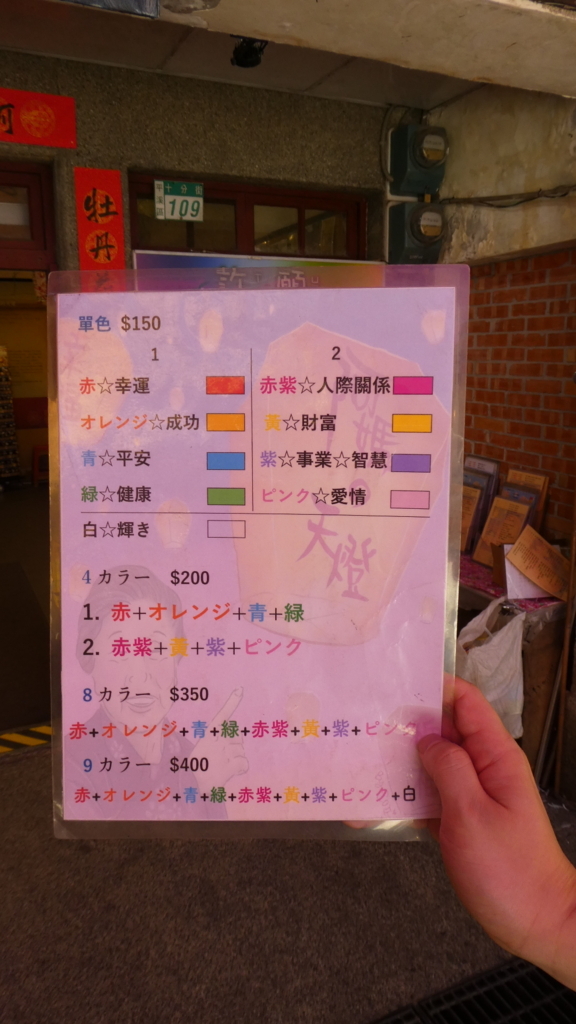 河
牡丹
十分街
平溪區
109
許願
單色 $150
1
2
赤☆幸運
赤紫☆人際關係
オレンジ☆成功
黃☆財富
青☆平安
紫☆事業☆智慧
緑☆健康
ピンク☆愛情
白☆輝き
天燈
4 カラー $200
1. 赤+オレンジ+青+緑
2. 赤紫+黄+紫+ピンク
8 カラー $350
赤+オレンジ+青+緑+赤紫+黄+紫+ピンク
9 カラー $400
赤+オレンジ+青+緑+赤紫+黄+紫+ピンク+白